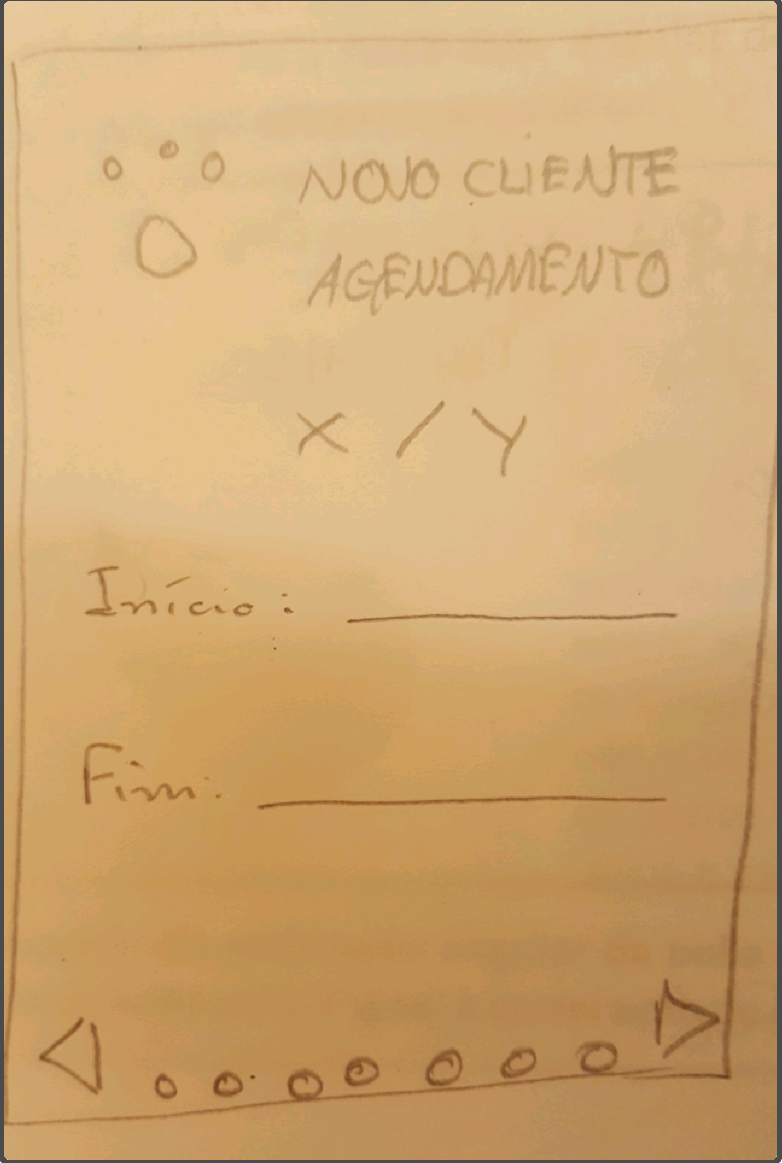 NOVO CLIENTE
AGENDAMENTO
X / Y
Início:
Fim: